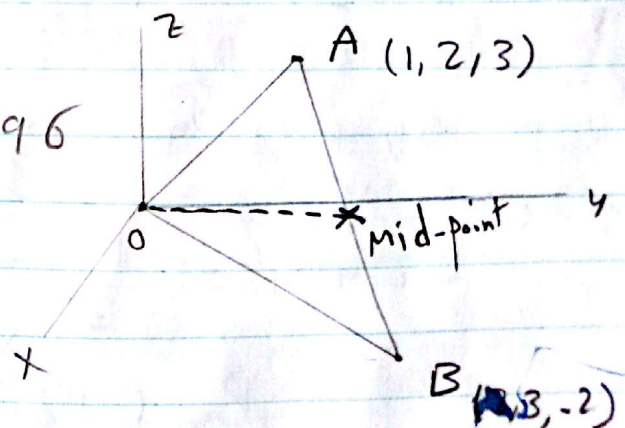 z
A (1,2,3)
96
O
y
Mid-point
X
B
,3,-2)